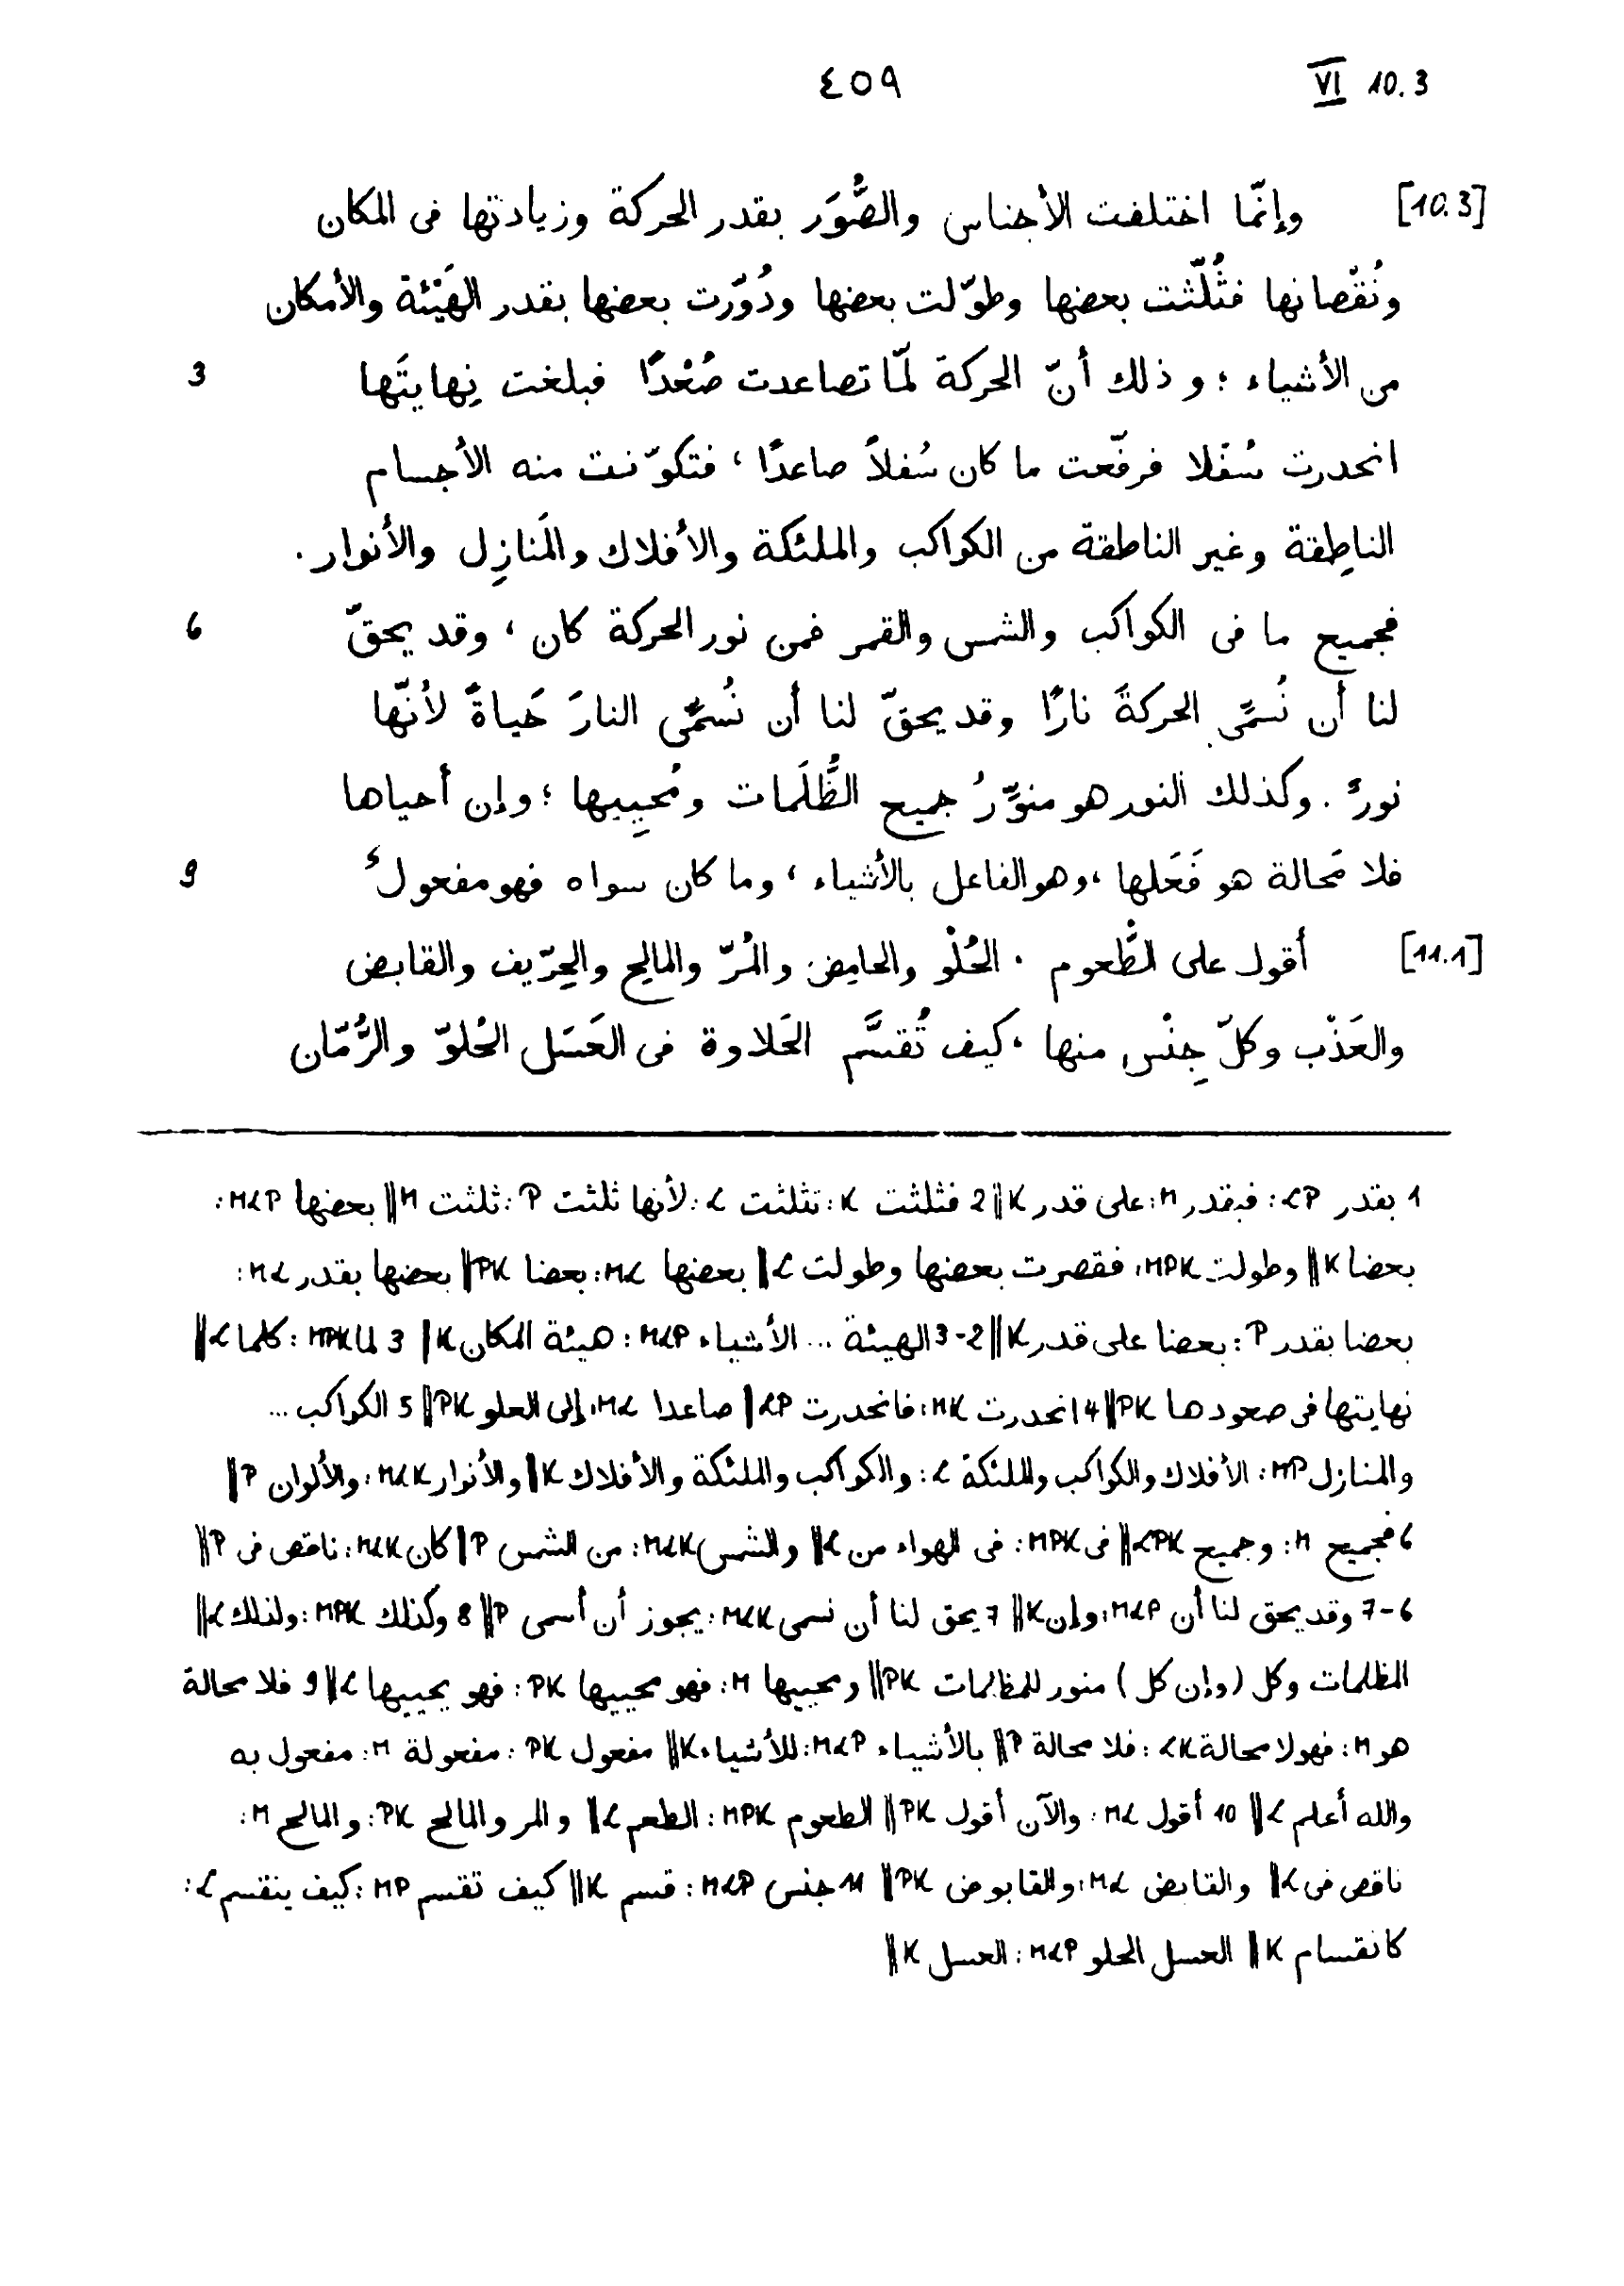 ٤٥٩ VI 10.3
[10.3] وإنّما اختلفت الأجناس والصُّوَر بقدر الحركة وزيادتها فى المكان
ونُقْصانها فثُلّثت بعضها وطوّلت بعضها ودُوّرت بعضها بقدر الهَيْئة والأمكان
من الأشياء ؛ وذلك أنّ الحركة لمّا تصاعدت صُعْدًا فبلغت نِهايتَها 3
انحدرت سُفْلا فرفّعت ما كان سُفلاً صاعدًا ، فتكوّنت منه الأجسام
الناطِقة وغير الناطقة من الكواكب والملئكة والأفلاك والمَنازِل والأنوار .
فجميع ما فى الكواكب والشمس والقمر فمن نور الحركة كان ، وقد يحقّ 6
لنا أن نُسمّى الحركةَ نارًا وقد يحقّ لنا أن نُسمّى النارَ حَياةً لأنّها
نورٌ . وكذلك النور هو منوِّرُ جميع الظُّلَمات ومُحيِيها ؛ وإن أحياها
فلا مَحالة هو فَعَلها ، وهو الفاعل بالأشياء ، وما كان سواه فهو مفعولٌ 9
[11.1] أقول على الطُّعوم . الحُلْو والحامِض والمُرّ والمالِح والحِرّيف والقابض
والعَذْب وكلّ جِنْس منها ، كيف تُقسَّم الحَلاوة فى العَسَل الحُلوّ والرُّمّان
1 بقدر LP: فبقدر M: على قدر K‖ 2 فثلثت K: تثلثت L: لأنها ثلثت P: ثلثت M‖ بعضها MLP:
بعضا K‖ وطولت MPK: فقصرت بعضها وطولت L‖ بعضها ML: بعضا PK‖ بعضها بقدر ML:
بعضا بقدر P: بعضا على قدر K‖ 2-3 الهيئة ... الأشياء MLP: هيئة المكان K‖ 3 لما MPK: كلما L‖
نهايتها فى صعودها PK‖ 4 انحدرت MK: فانحدرت LP‖ صاعدا ML: إلى العلو PK‖ 5 الكواكب ...
والمنازل MP: الأفلاك والكواكب والملئكة L: والكواكب والملئكة والأفلاك K‖ والأنوار MLK: والألوان P‖
6 فجميع M: وجميع LPK‖ فى MPK: فى الهواء من L‖ والشمس MLK: من الشمس P‖ كان MLK: ناقص فى P‖
6-7 وقد يحق لنا أن MLP: وإن K‖ 7 يحق لنا أن نسمى MLK: يجوز أن أسمى P‖ 8 وكذلك MPK: ولذلك L‖
الظلمات وكل (وإن كل) منور للمظلمات PK‖ ومحييها M: فهو محييها PK: فهو يحييها L‖ 9 فلا محالة
هو M: فهو لا محالة LK: فلا محالة P‖ بالأشياء MLP: للأشياء K‖ مفعول PK: مفعولة M: مفعول به
والله أعلم L‖ 10 أقول ML: والآن أقول PK‖ الطعوم MPK: الطعم L‖ والمر والمالح PK: والمالح M:
ناقص فى L‖ والقابض ML: والقابوض PK‖ 11 جنس MLP: قسم K‖ كيف تقسم MP: كيف ينقسم L:
كانقسام K‖ العسل الحلو MLP: العسل K‖